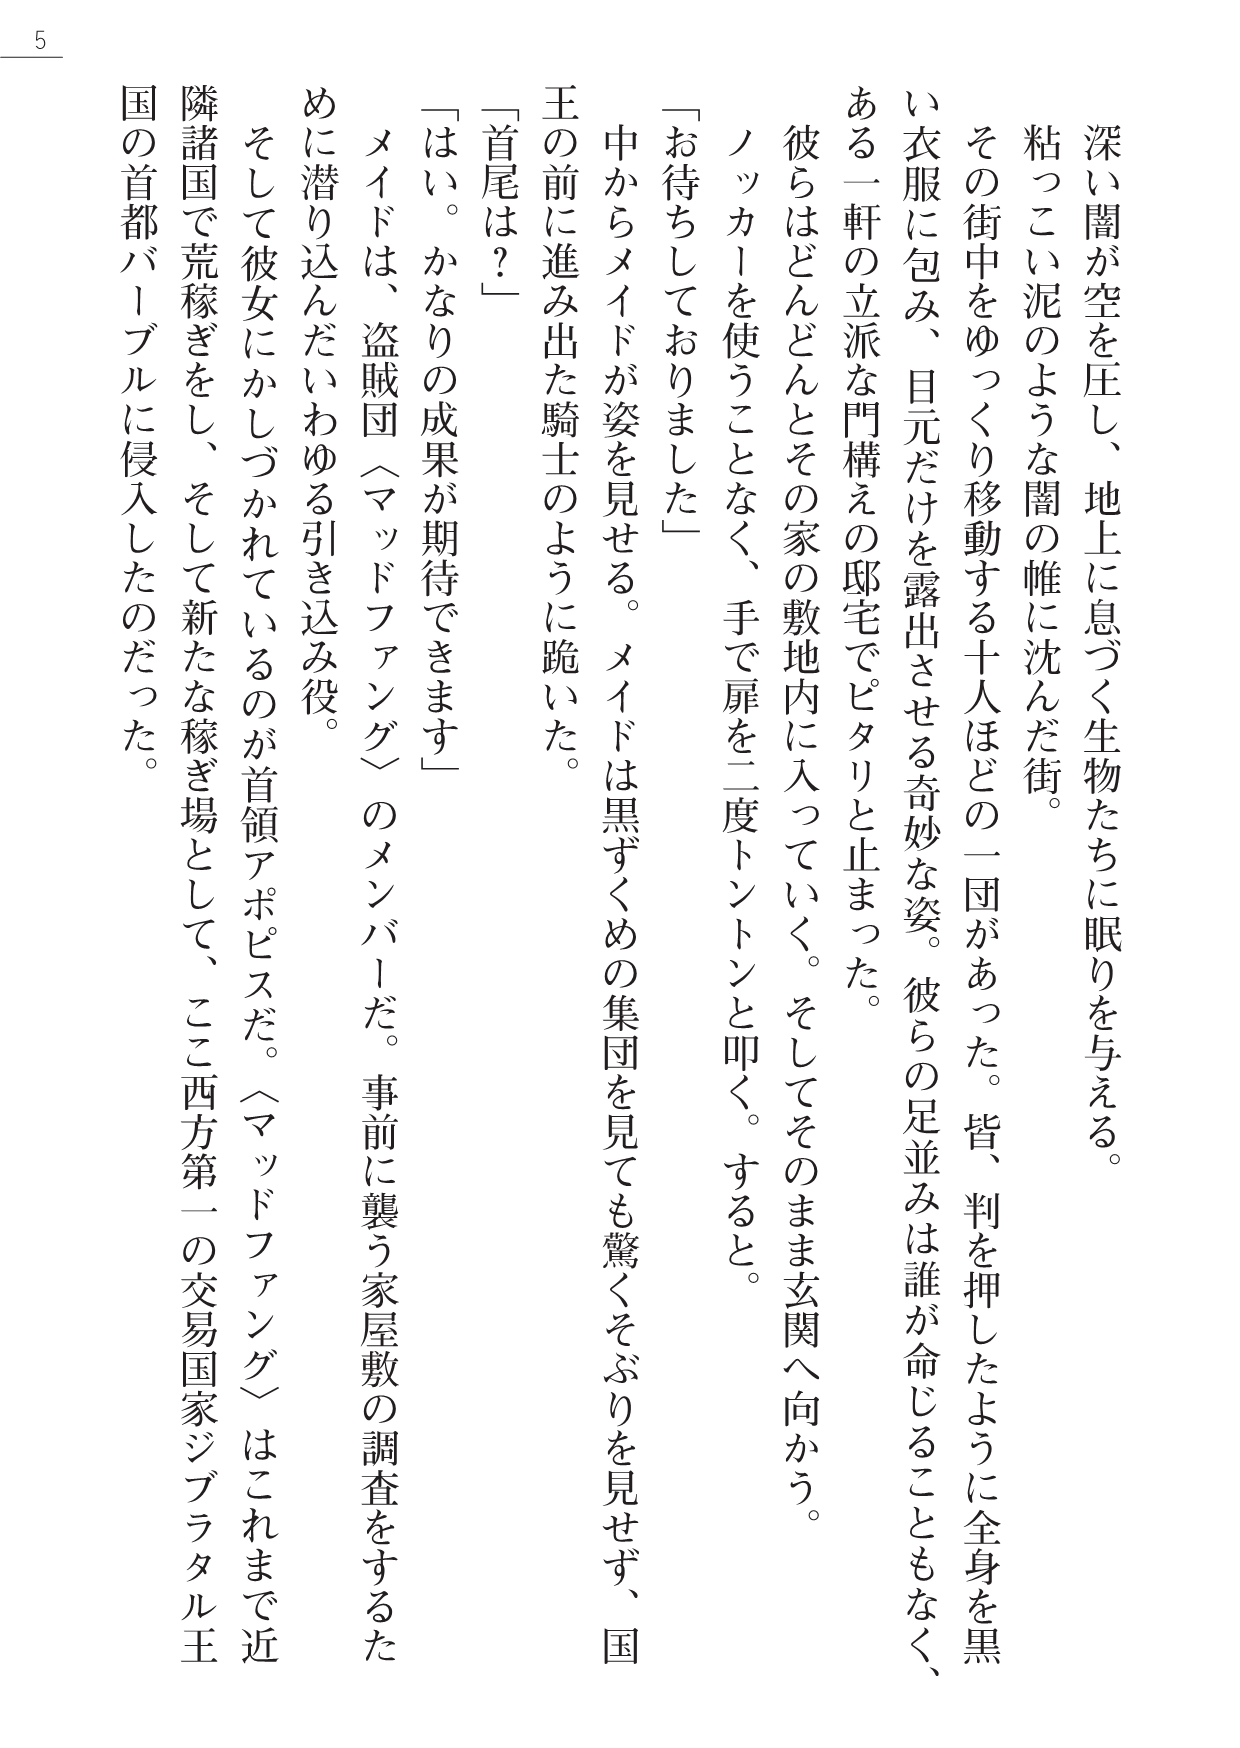 5
深い闇が空を圧し、地上に息づく生物たちに眠りを与える。
粘っこい泥のような闇の帷に沈んだ街。
その街中をゆっくり移動する十人ほどの一団があった。皆、判を押したように全身を黒
い衣服に包み、目元だけを露出させる奇妙な姿。彼らの足並みは誰が命じることもなく、
ある一軒の立派な門構えの邸宅でピタリと止まった。
彼らはどんどんとその家の敷地内に入っていく。そしてそのまま玄関へ向かう。
ノッカーを使うことなく、手で扉を二度トントンと叩く。すると。
「お待ちしておりました」
中からメイドが姿を見せる。メイドは黒ずくめの集団を見ても驚くそぶりを見せず、国
王の前に進み出た騎士のように跪いた。
「首尾は？」
「はい。かなりの成果が期待できます」
メイドは、盗賊団〈マッドファング〉のメンバーだ。事前に襲う家屋敷の調査をするた
めに潜り込んだいわゆる引き込み役。
そして彼女にかしづかれているのが首領アポピスだ。〈マッドファング〉はこれまで近
隣諸国で荒稼ぎをし、そして新たな稼ぎ場として、ここ西方第一の交易国家ジブラタル王
国の首都バーブルに侵入したのだった。